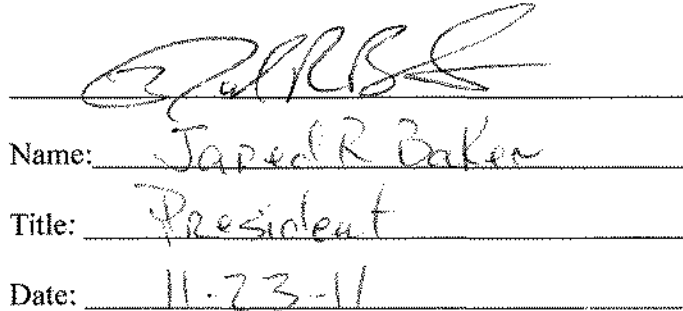 Name: Jared R Baker
Title: President
Date: 11-23-11